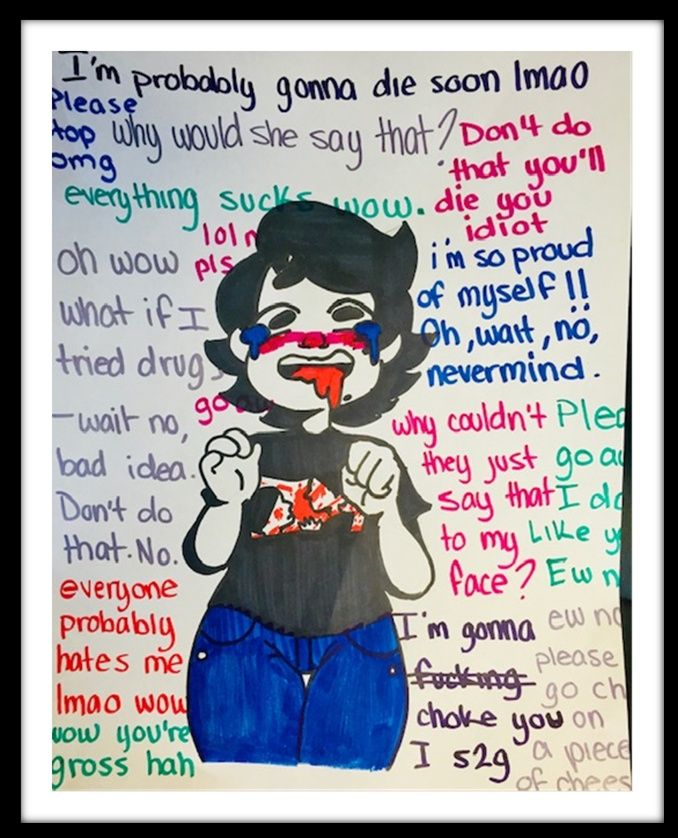 I'm probably gonna die soon lmao
Please
top
omg
why would she say that?
Don't do
that you'll
die you
idiot
everything sucks wow.
lol n
pls
oh wow
what if I
tried drugs
-wait no,
bad idea.
Don't do
that. No.
i'm so proud
of myself!!
Oh, wait, no,
nevermind.
go aw
why couldn't
they just
say that
to my
face?
Plea
go aw
I do
Like y
Ew n
everyone
probably
hates me
lmao wow
wow you're
gross hah
I'm gonna
fucking
choke you
I s2g
ew no
please
go ch
on
a piece
of chees